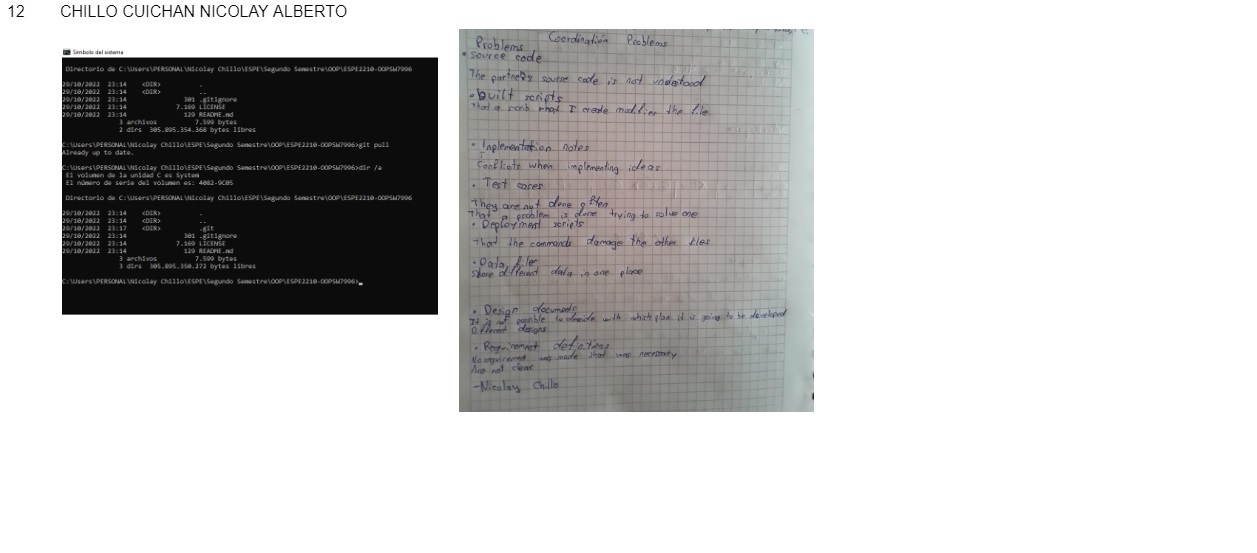 12 CHILLO CUICHAN NICOLAY ALBERTO
Símbolo del sistema
Directorio de C:\Users\PERSONAL\Nicolay Chillo\ESPE\Segundo Semestre\OOP\ESPE2210-OOPSW7996
29/10/2022 23:14 <DIR> .
29/10/2022 23:14 <DIR> ..
29/10/2022 23:14 301 .gitignore
29/10/2022 23:14 7.169 LICENSE
29/10/2022 23:14 129 README.md
3 archivos 7.599 bytes
2 dirs 305.895.354.368 bytes libres
C:\Users\PERSONAL\Nicolay Chillo\ESPE\Segundo Semestre\OOP\ESPE2210-OOPSW7996>git pull
Already up to date.
C:\Users\PERSONAL\Nicolay Chillo\ESPE\Segundo Semestre\OOP\ESPE2210-OOPSW7996>dir /a
El volumen de la unidad C es System
El número de serie del volumen es: 4082-9C05
Directorio de C:\Users\PERSONAL\Nicolay Chillo\ESPE\Segundo Semestre\OOP\ESPE2210-OOPSW7996
29/10/2022 23:14 <DIR> .
29/10/2022 23:14 <DIR> ..
29/10/2022 23:17 <DIR> .git
29/10/2022 23:14 301 .gitignore
29/10/2022 23:14 7.169 LICENSE
29/10/2022 23:14 129 README.md
3 archivos 7.599 bytes
3 dirs 305.895.350.272 bytes libres
C:\Users\PERSONAL\Nicolay Chillo\ESPE\Segundo Semestre\OOP\ESPE2210-OOPSW7996>
Coordination Problems
Problems
• source code
The partners source code is not undestood
• built scripts
That a what I create the file
• Inplementation notes
Conflicts when implementing ideas
• Test cases
They are not done often
That a problem is done trying to solve one
• Deployment scripts
That the commands damage the other files
• Data files
Store different data in one place
• Design documents
It is not possible to decide with which plan it is going to be developed
Different designs
• Requirement definitions
No requirement was made that was necessary
Are not clear
-Nicolay Chillo